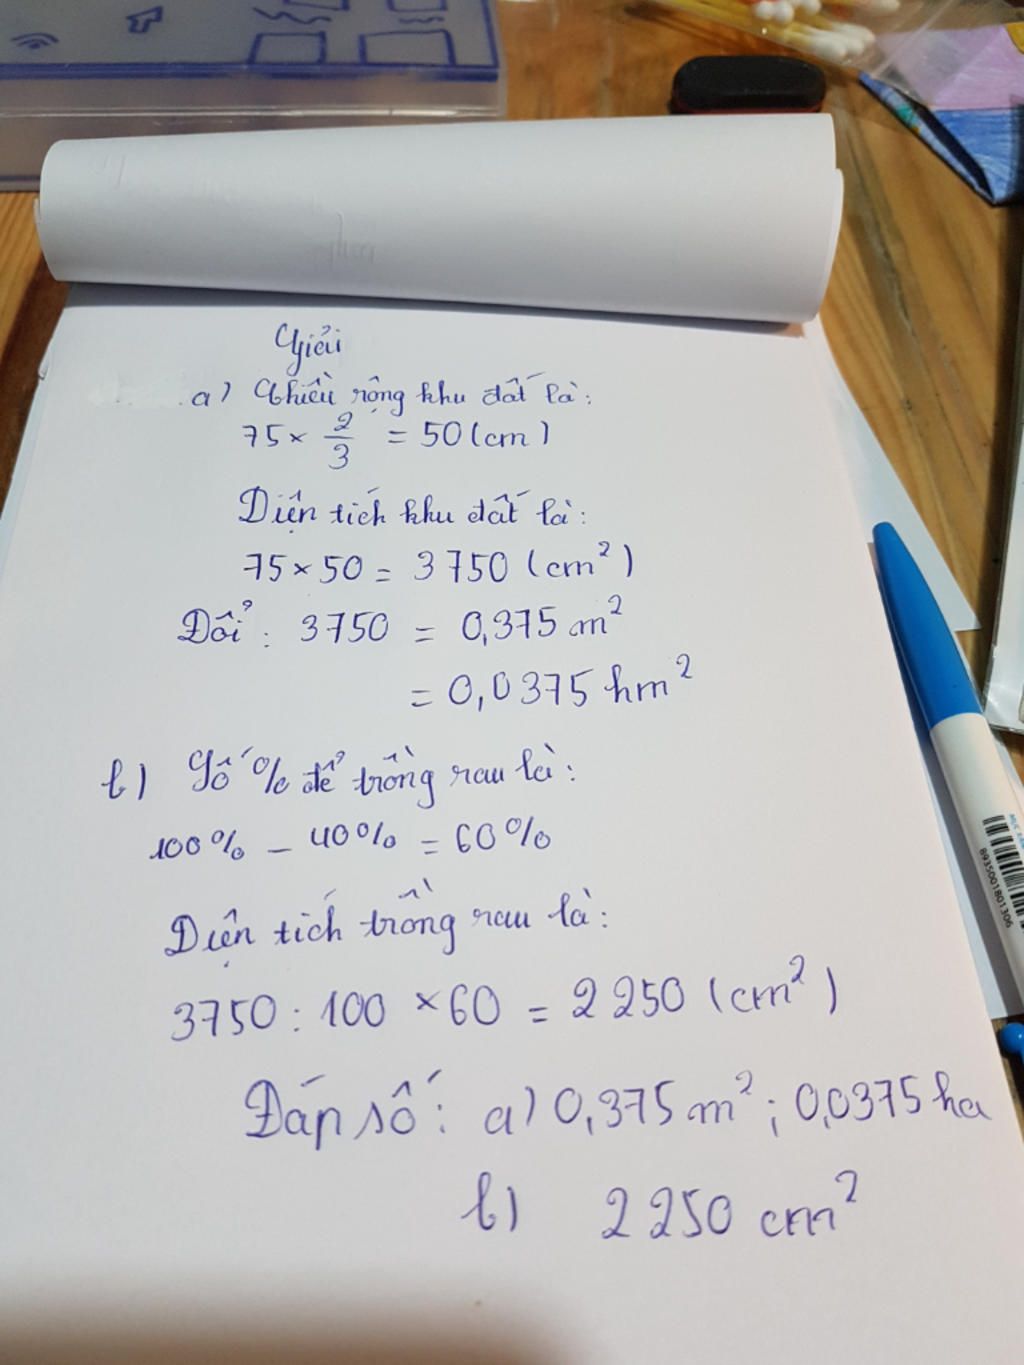 Giải
a) Chiều rộng khu đất là:
75 × 2/3 = 50 (cm)
Diện tích khu đất là:
75 × 50 = 3750 (cm²)
Đổi: 3750 = 0,375 m²
= 0,0375 hm²
b) Số % để trồng rau là:
100% - 40% = 60%
Diện tích trồng rau là:
3750 : 100 × 60 = 2250 (cm²)
Đáp số: a) 0,375 m²; 0,0375 ha
b) 2250 cm²
8935001801306